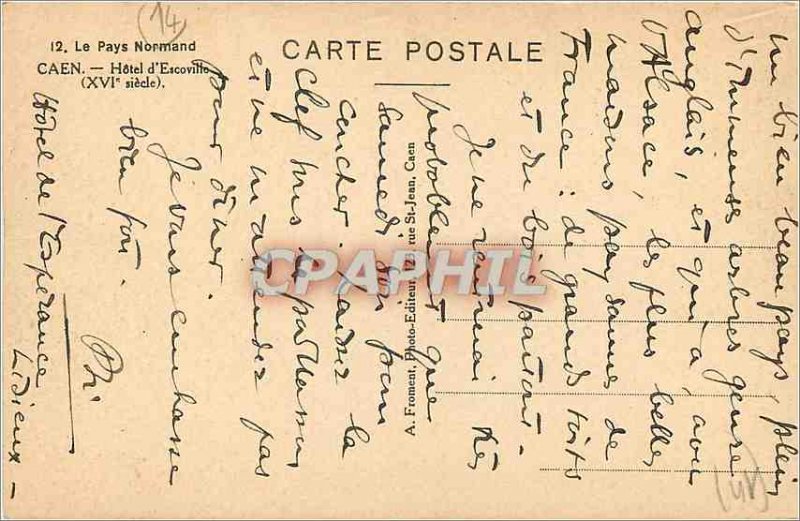 (14)
12. Le Pays Normand
CAEN. — Hôtel d'Escoville
(XVIe siècle).
CARTE POSTALE
A. Froment, Photo-Editeur, 12, rue St-Jean, Caen
CPAPHIL
un bien beau pays, plein
d'immenses arbres genre
anglais, et qui a, avec
l'Alsace, les plus belles
maisons paysannes de
France : de grands toits
et du bois partout.
Je ne rentrerai très
probablement que
samedi soir pour
coucher. Laissez la
clef sous le paillasson
et ne m'attendez pas
pour dîner.
Je vous embrasse
bien fort.
Hôtel de l'Espérance
Lisieux —